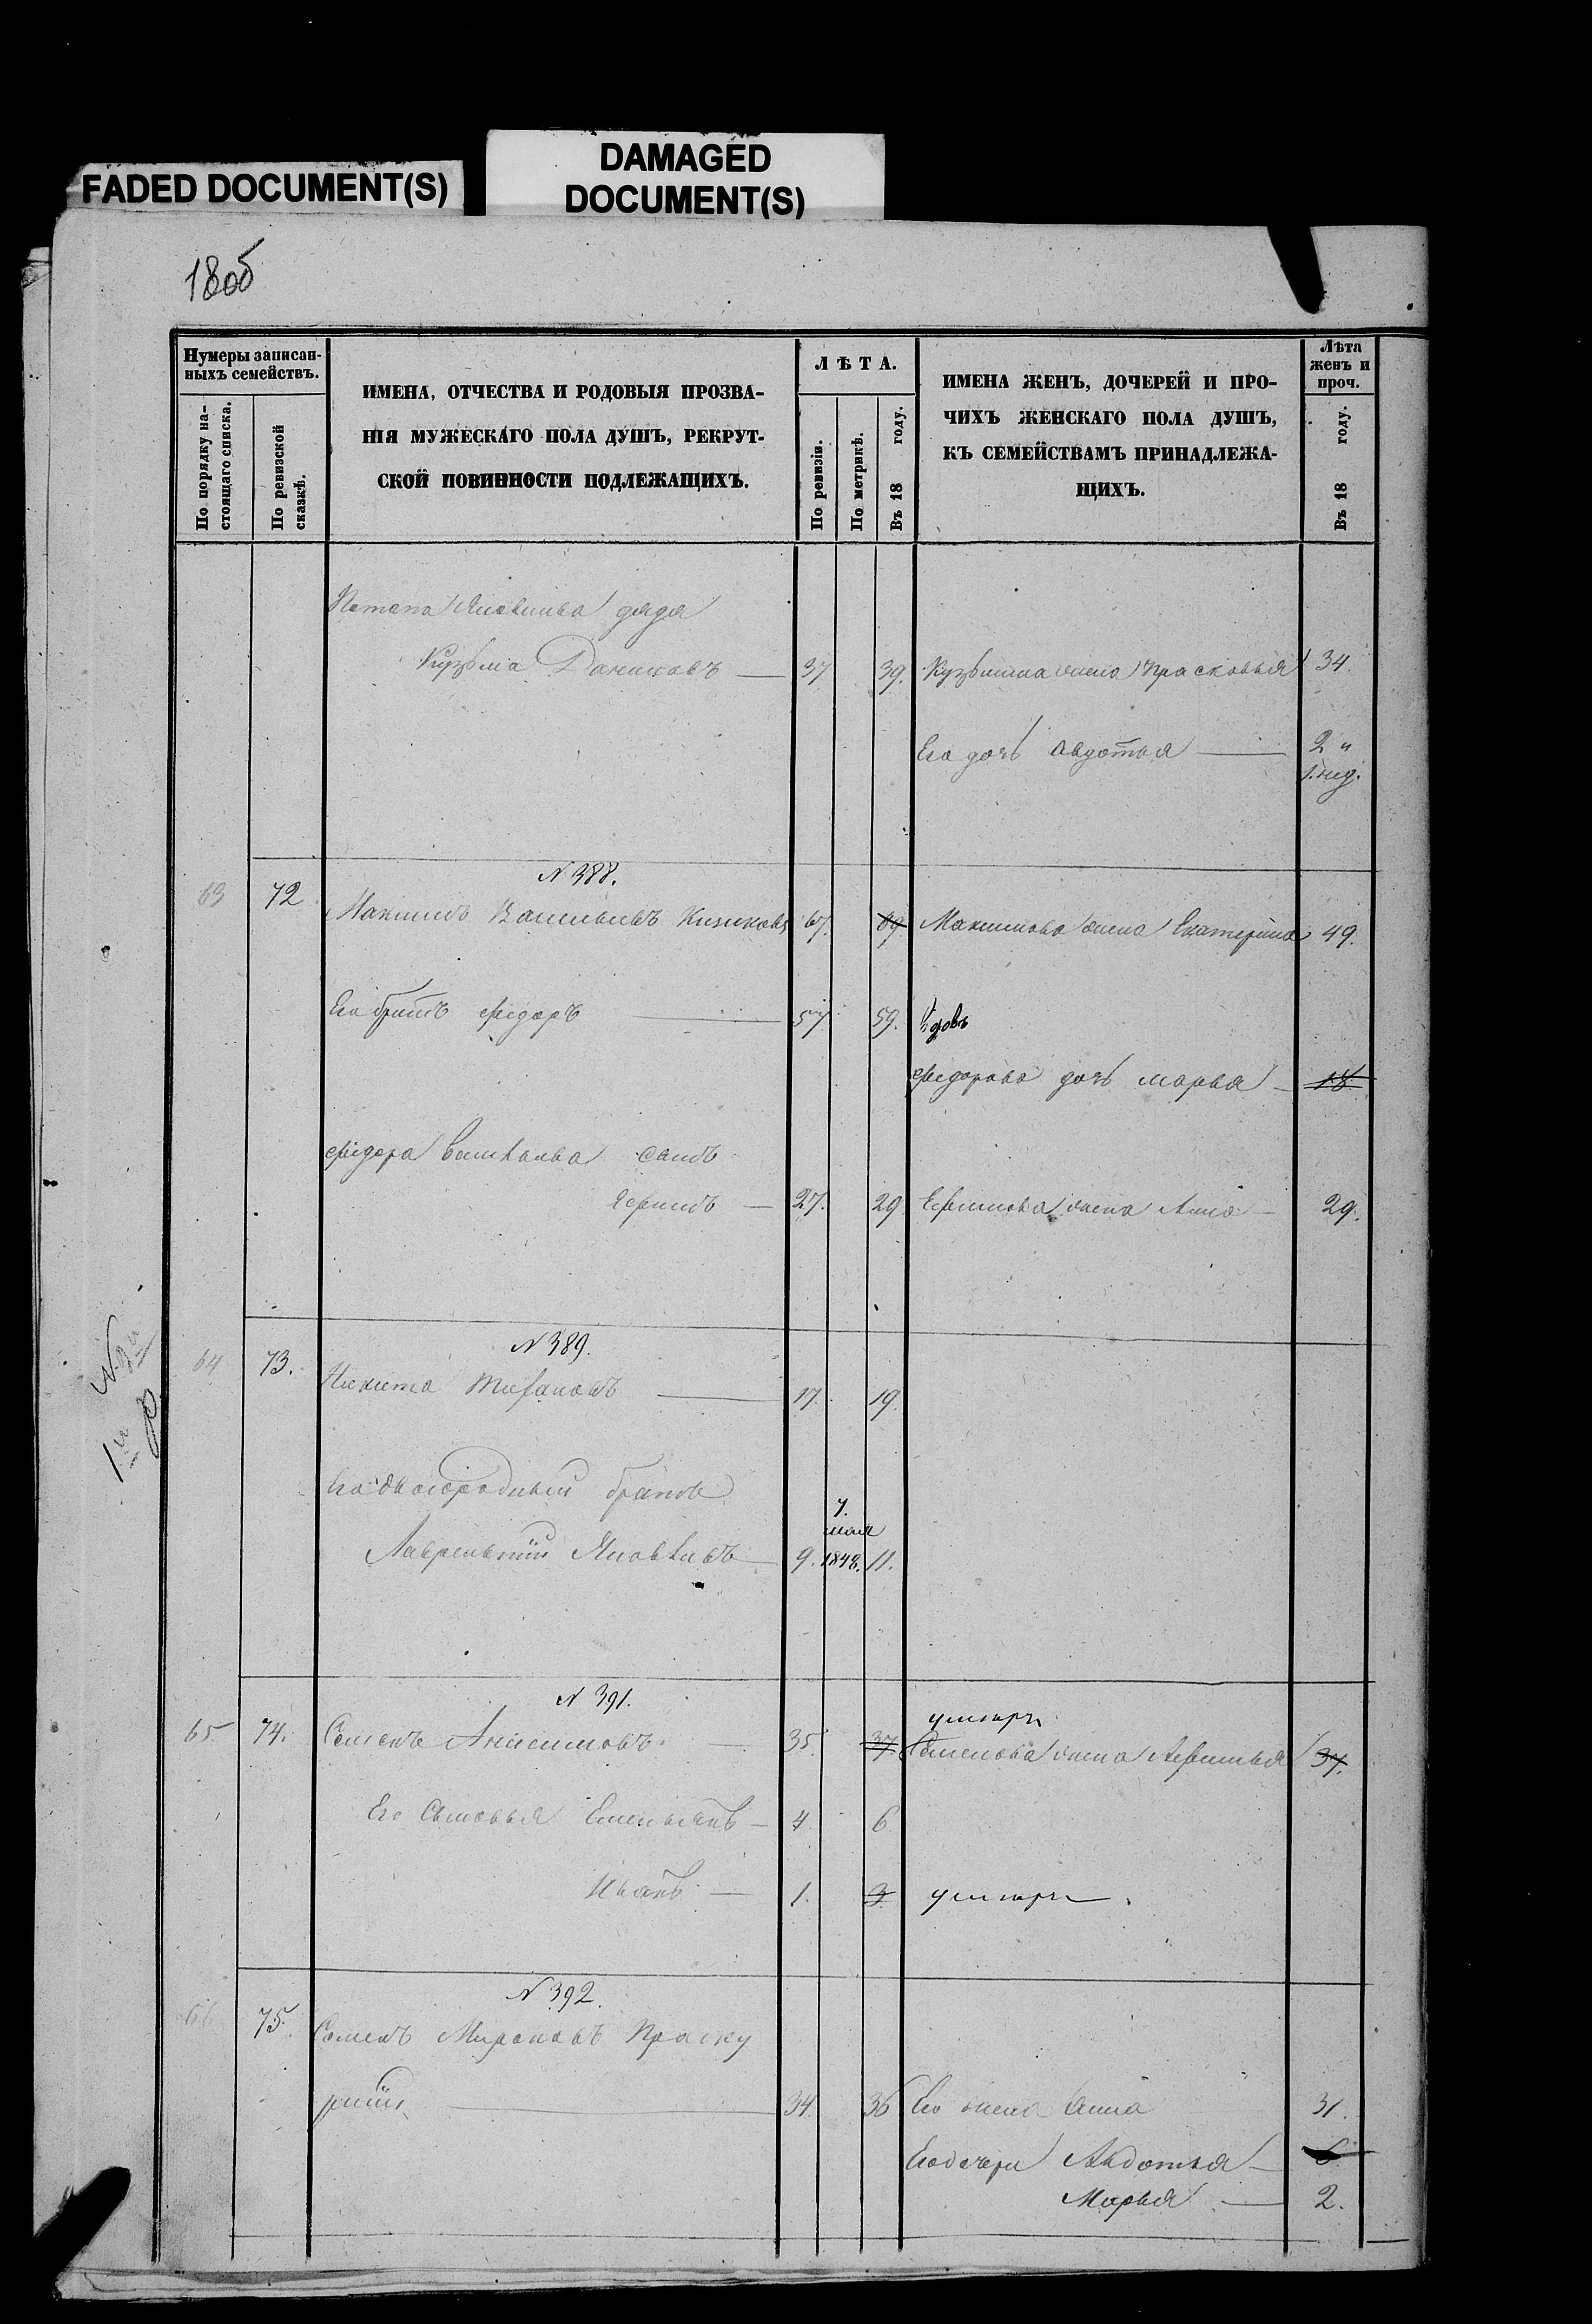 FADED DOCUMENT(S)
DAMAGED
DOCUMENT(S)
180б
Нумеры записан-
ныхъ семействъ.
По порядку на-
стоящаго списка.
По ревизской
сказкѣ.
ИМЕНА, ОТЧЕСТВА И РОДОВЫЯ ПРОЗВА-
НІЯ МУЖЕСКАГО ПОЛА ДУШЪ, РЕКРУТ-
СКОЙ ПОВИННОСТИ ПОДЛЕЖАЩИХЪ.
ЛѢТА.
По ревизіи.
По метрикѣ.
Въ 18 году.
ИМЕНА ЖЕНЪ, ДОЧЕРЕЙ И ПРО-
ЧИХЪ ЖЕНСКАГО ПОЛА ДУШЪ,
КЪ СЕМЕЙСТВАМЪ ПРИНАДЛЕЖА-
ЩИХЪ.
Лѣта
женъ и
проч.
Въ 18 году.
Потапа дядя
Кузьма Даниловъ 37 39. Кузьмина жена Прасковья 34.
Его дочь Авдотья 2 "
1. нед.
N 388.
63 72 Максимъ Васильевъ 67. 69 Максимова жена Екатерина 49.
Его братъ Фёдоръ 57 59. Вдовъ
Федорова дочь марья 18
Фёдора Васильева сынъ
Ефимъ 27. 29 Ефимова жена Анна 29.
N 389.
64 73. Никита 17. 19.
Его двоюродный братъ
7.
мая
Лаврентий Яковлевъ 9. 1848. 11.
N 391.
умерла
65. 74. Семенъ Анисимовъ. 35. 37. Семенова жена Афимья 37.
Его Сыновья Емельянъ 4 6
Иванъ 1. 3 умеръ.
N 392.
66 75. Семенъ Мироновъ Праску
ринъ 34. 36 Его жена Анна 31.
Его дочери Авдотья 6
Марья 2.